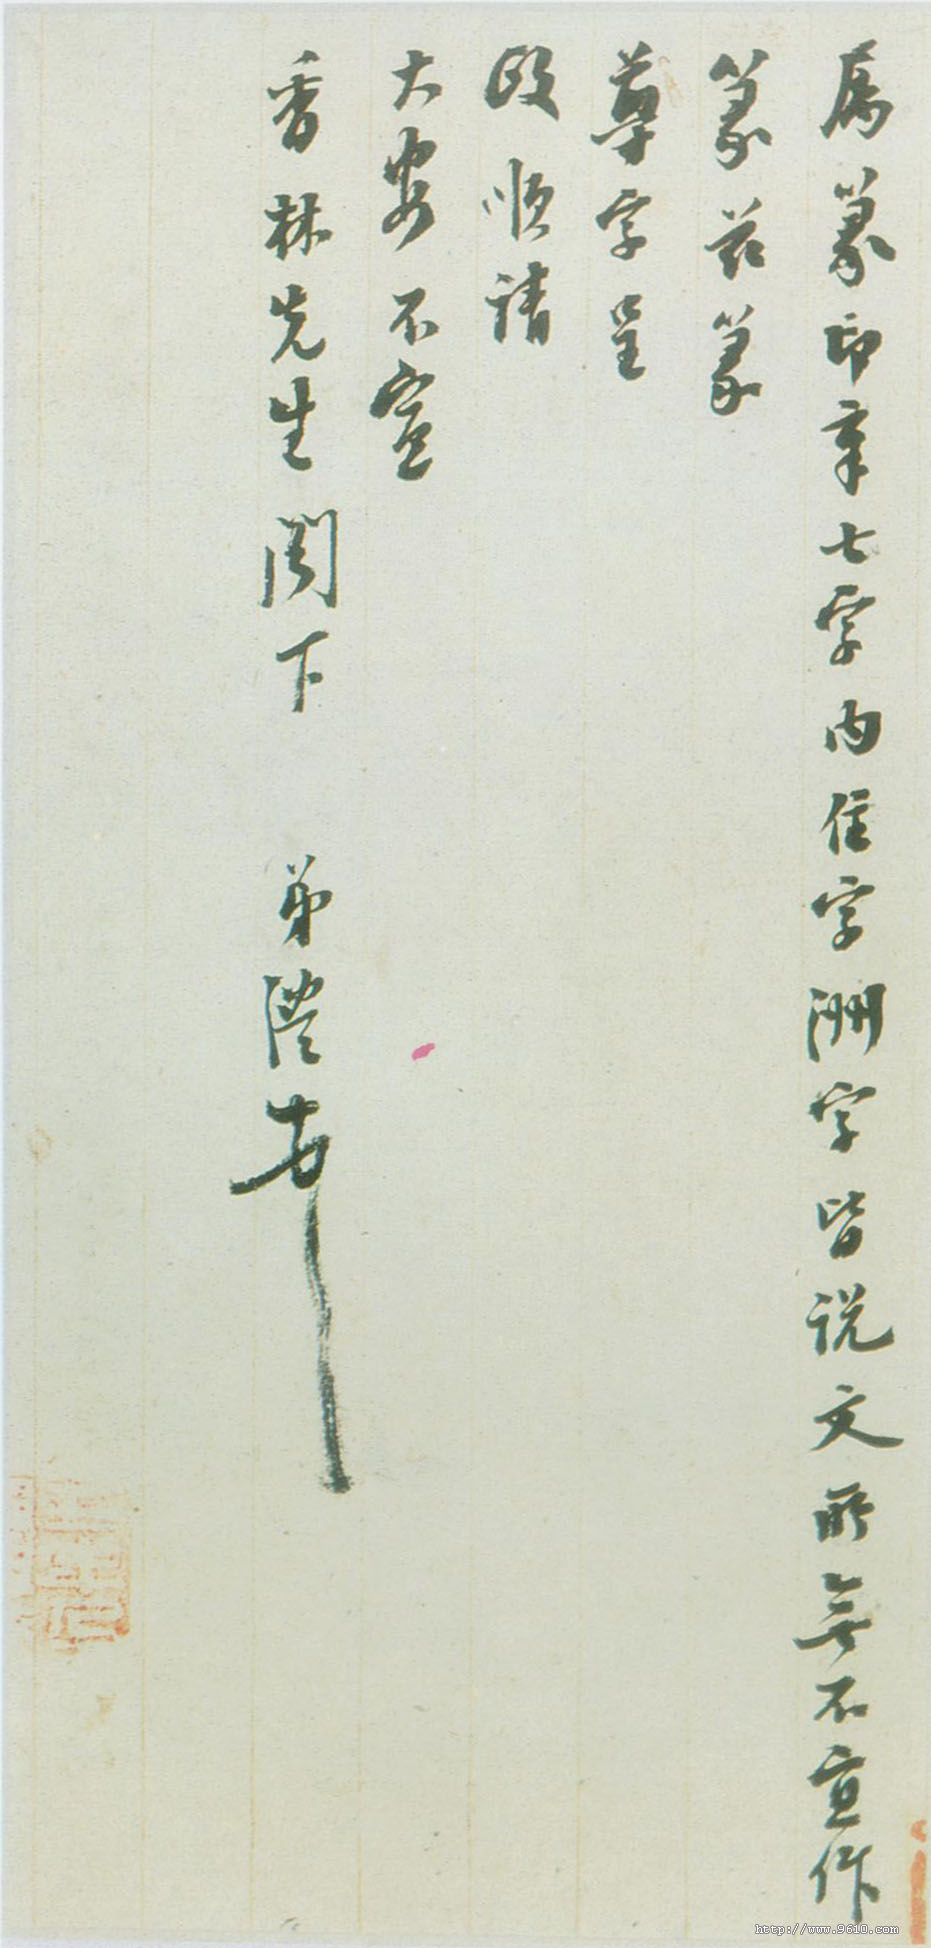 属篆印章七字内住字洲字皆说文所無不宜作
篆兹篆
尊字呈
政順請
大安不宣
香林先生閣下 弟澧頓
http://www.9610.com